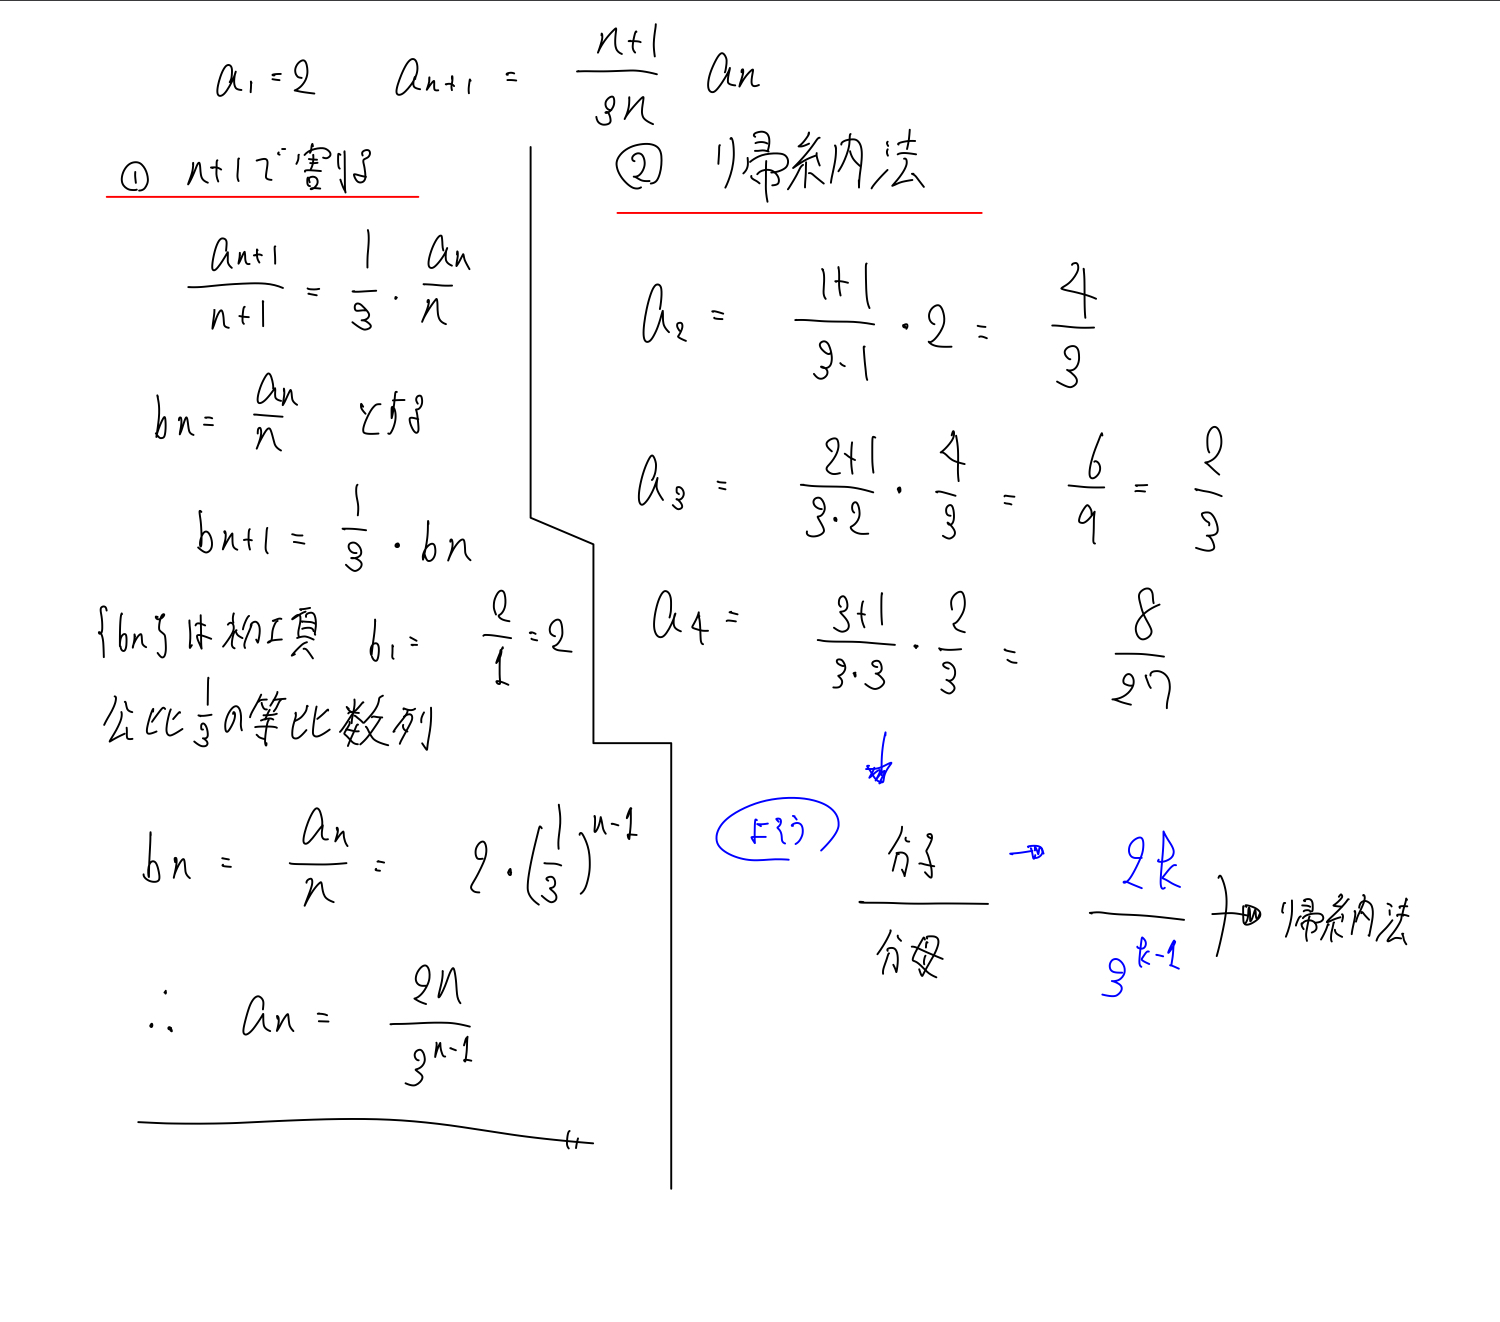 a₁ = 2 aₙ₊₁ = (n+1)/(3n) aₙ
① n+1で割る
aₙ₊₁/(n+1) = 1/3 · aₙ/n
bₙ = aₙ/n とする
bₙ₊₁ = 1/3 · bₙ
{bₙ}は初項 b₁ = 2/1 = 2
公比 1/3 の等比数列
bₙ = aₙ/n = 2 · (1/3)ⁿ⁻¹
∴ aₙ = 2n/3ⁿ⁻¹
② 帰納法
a₂ = (1+1)/(3·1) · 2 = 4/3
a₃ = (2+1)/(3·2) · 4/3 = 6/9 = 2/3
a₄ = (3+1)/(3·3) · 2/3 = 8/27
↓
よそう 分子/分母 → 2k/3ᵏ⁻¹ } → 帰納法